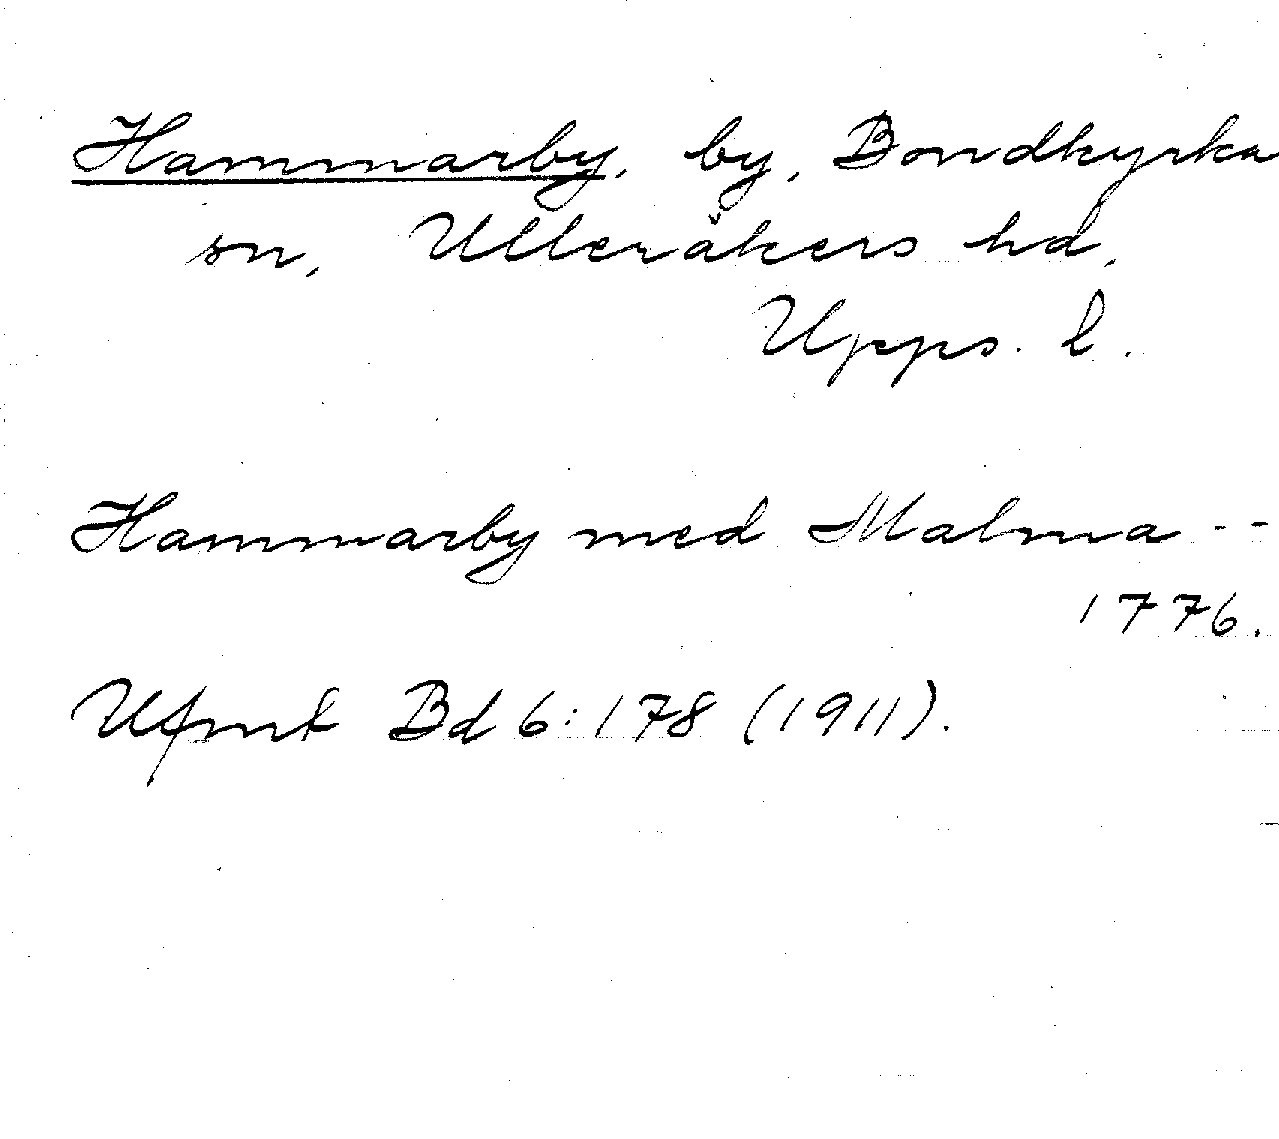 Hammarby, by, Bondkyrka
sn, Ulleråkers hd,
Upps. l.
Hammarby med Malma --
1776.
Ufmt Bd 6:178 (1911).